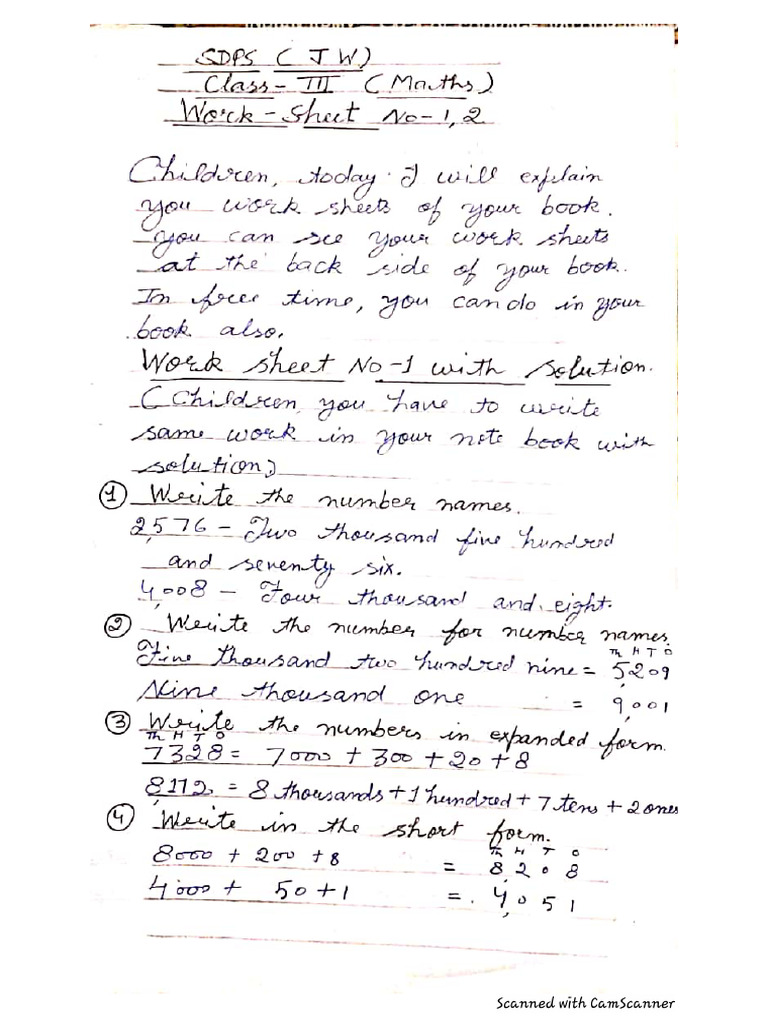 SDPS (JW)
Class - III (Maths)
Work - Sheet No - 1, 2
Children, today I will explain
you work sheets of your book.
you can see your work sheets
at the back side of your book.
In free time, you can do in your
book also.
Work sheet No - 1 with solution.
(Children, you have to write
same work in your note book with
solution)
① Write the number names.
2,576 - Two thousand five hundred
and seventy six.
4,008 - Four thousand and eight.
② Write the number for number names.
Th H T O
Five thousand two hundred nine = 5,209
Nine thousand one = 9,001
③ Write the numbers in expanded form.
Th H T O
7328 = 7000 + 300 + 20 + 8
8,172 = 8 thousands + 1 hundred + 7 tens + 2 ones
④ Write in the short form.
Th H T O
8000 + 200 + 8 = 8,208
4000 + 50 + 1 = 4,051
Scanned with CamScanner